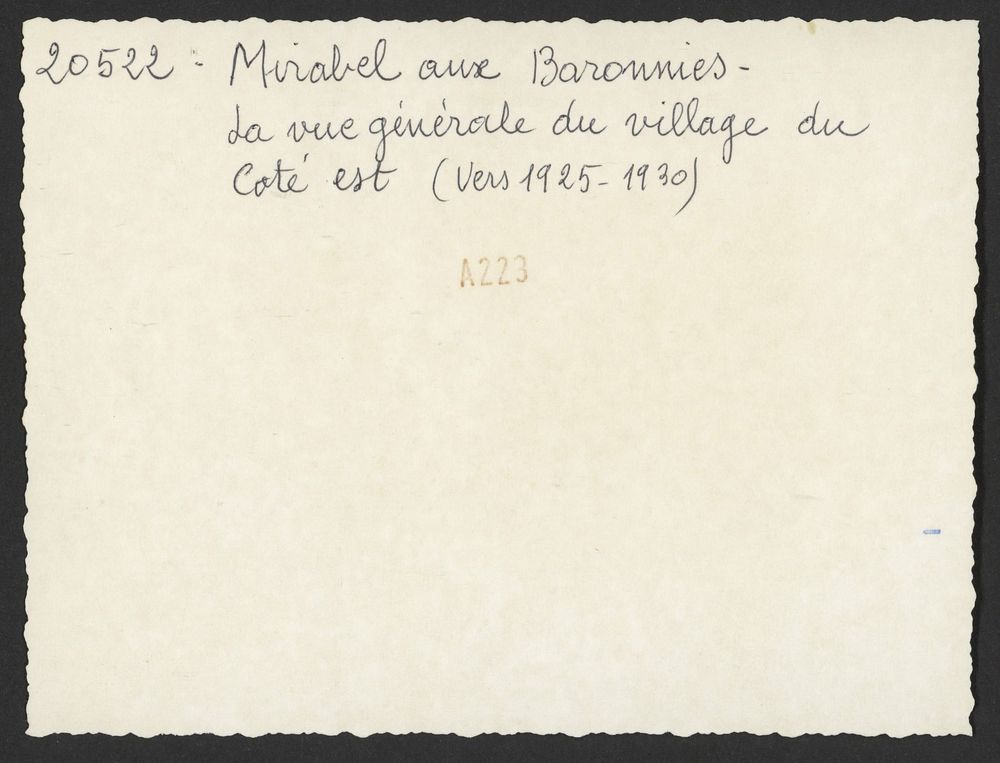 20522 - Mirabel aux Baronnies -
La vue générale du village du
Coté est (Vers 1925-1930)
A223